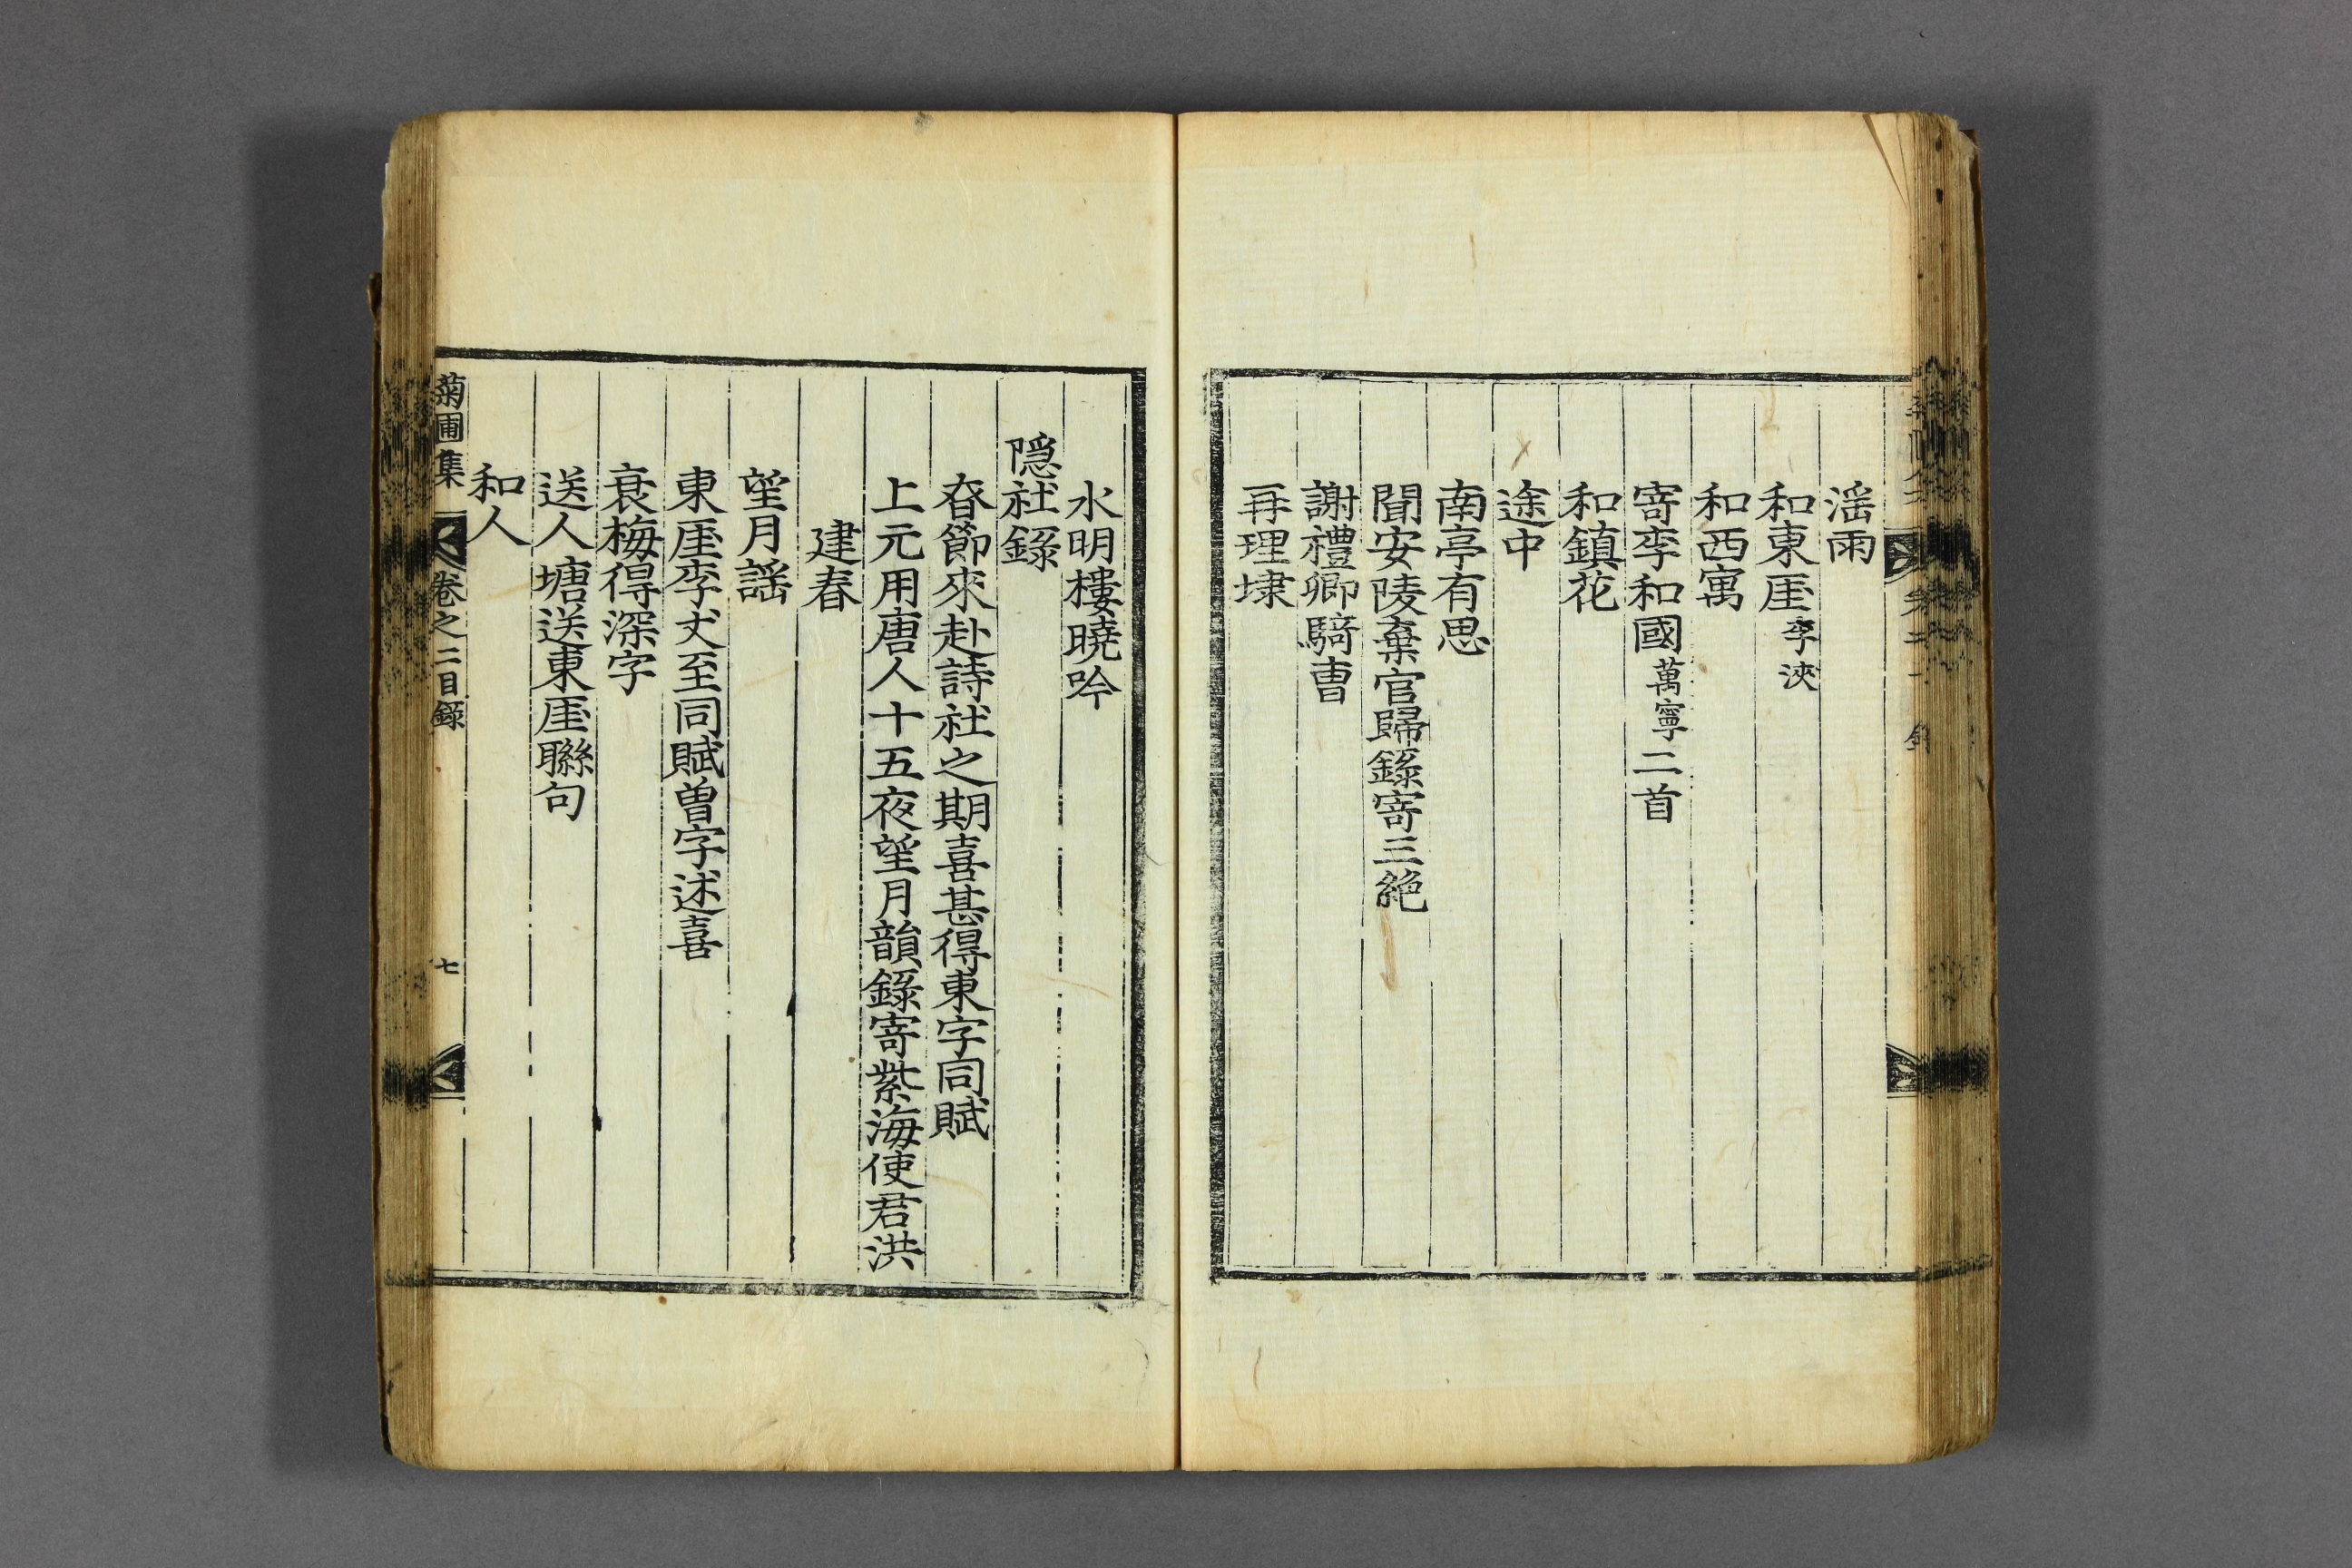 淫雨
和東厓李浹
和西寓
寄李和國萬寧二首
和鎮花
途中
南亭有思
聞安陵棄官歸錄寄三絶
謝禮卿騎曺
再理埭
水明樓曉吟
隠社錄
春節來赴詩社之期喜甚得東字同賦
上元用唐人十五夜望月韻錄寄紫海使君洪
建春
望月謡
東厓李丈至同賦曽字述喜
衰梅得深字
送人塘送東厓聯句
和人
菊圃集 卷之二目錄 七